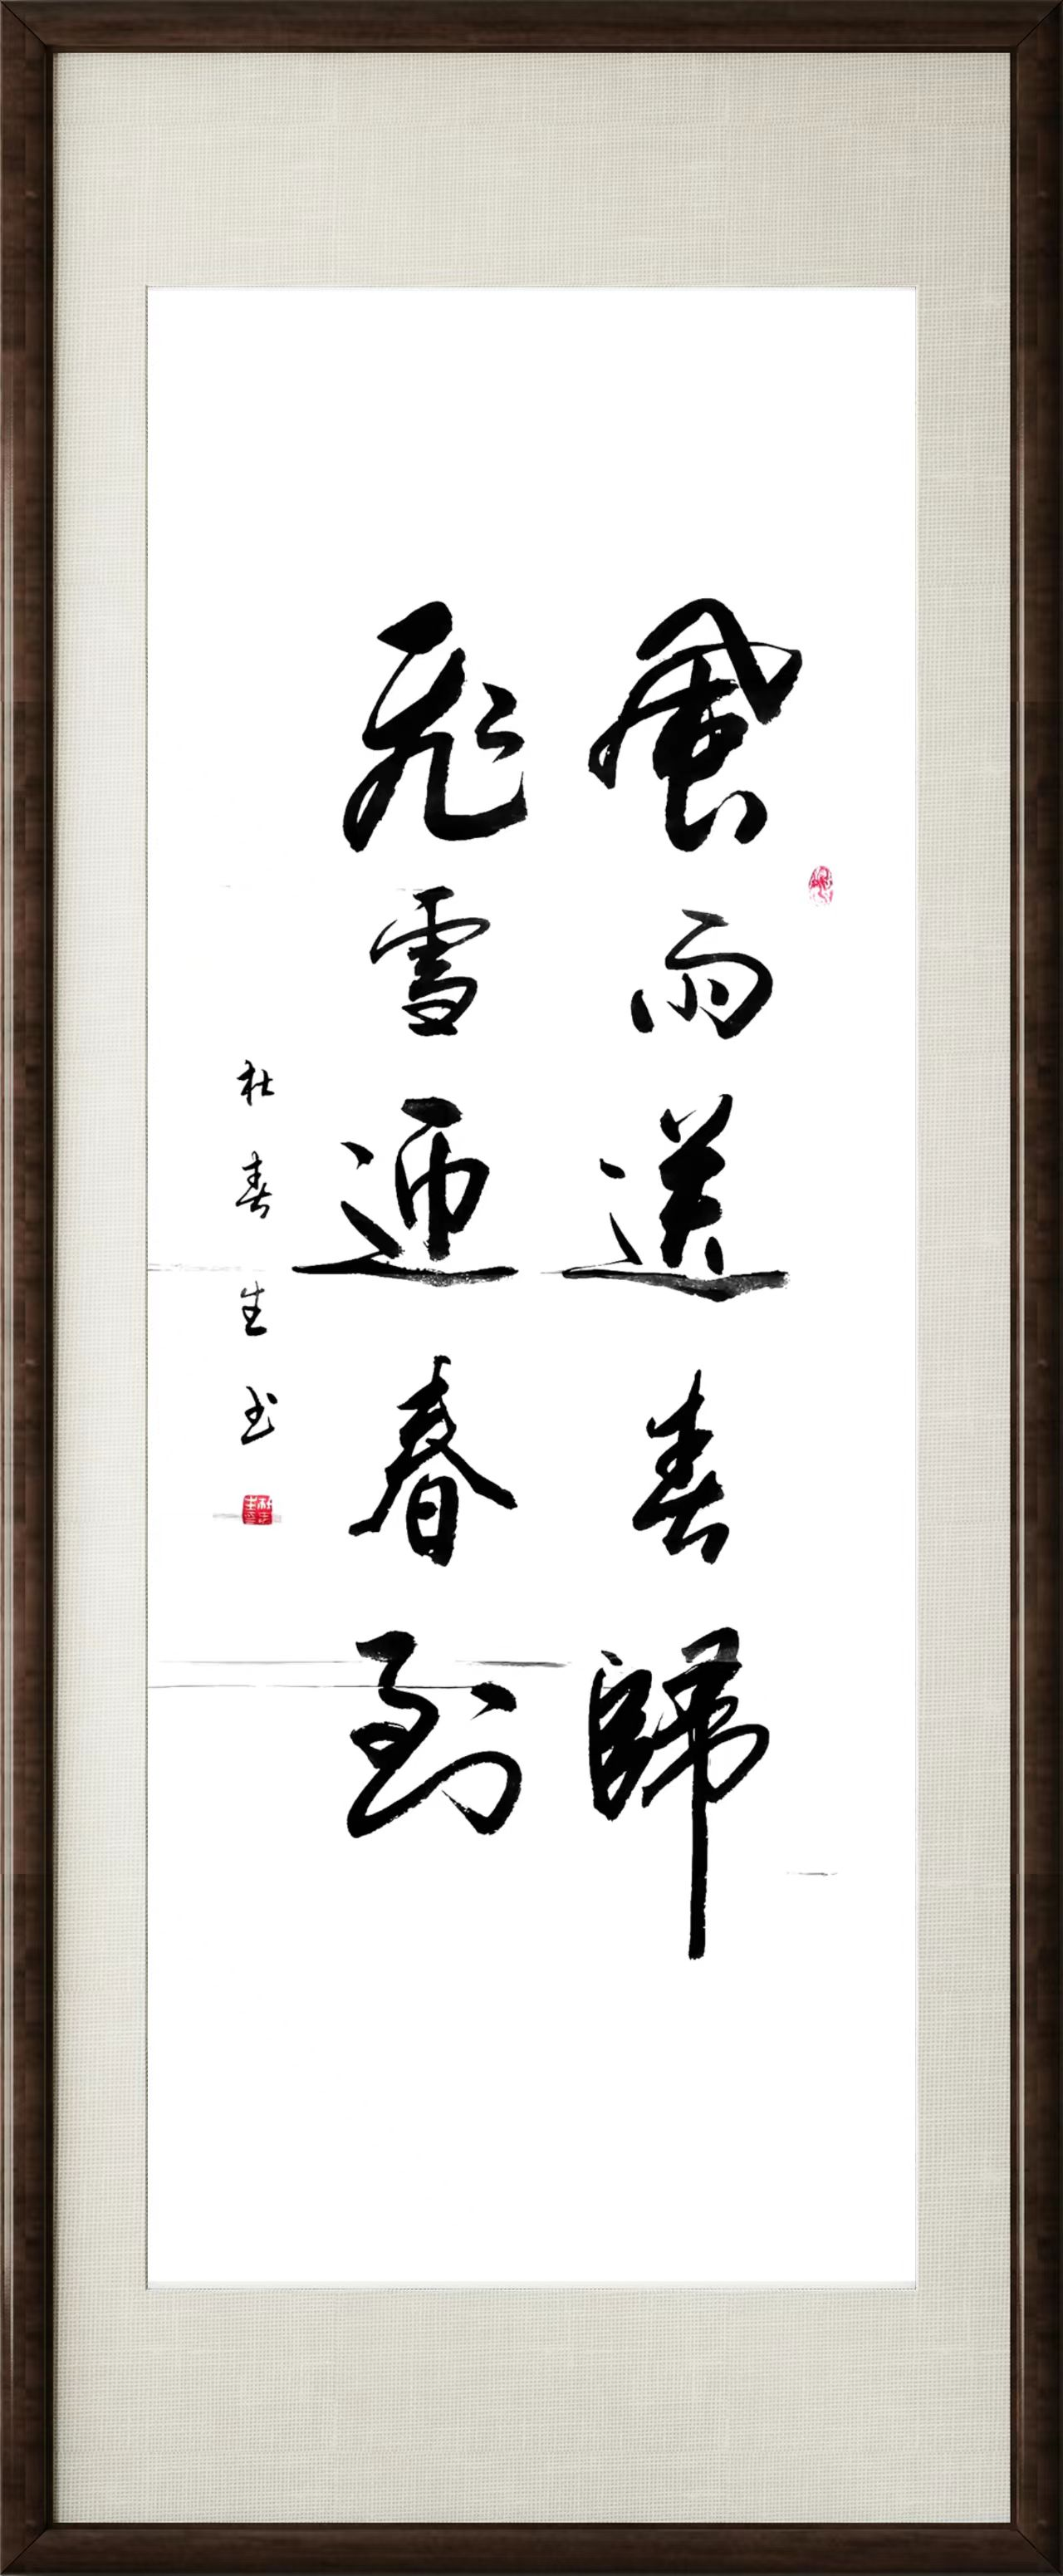 風雨送春歸
飛雪迎春到
杜春生书